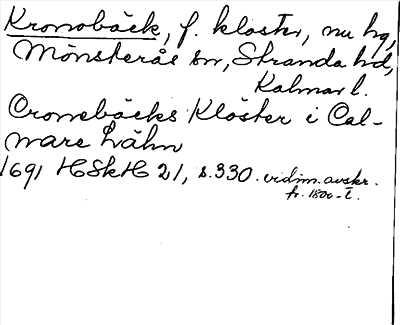 Kronobäck, f. kloster, nu hg,
Mönsterås sn, Stranda hd,
Kalmar l.
Cronebäcks Klöster i Cal-
mare Lähn
1691 HSkH 21, s. 330. vidim. avskr.
fr. 1800-t.